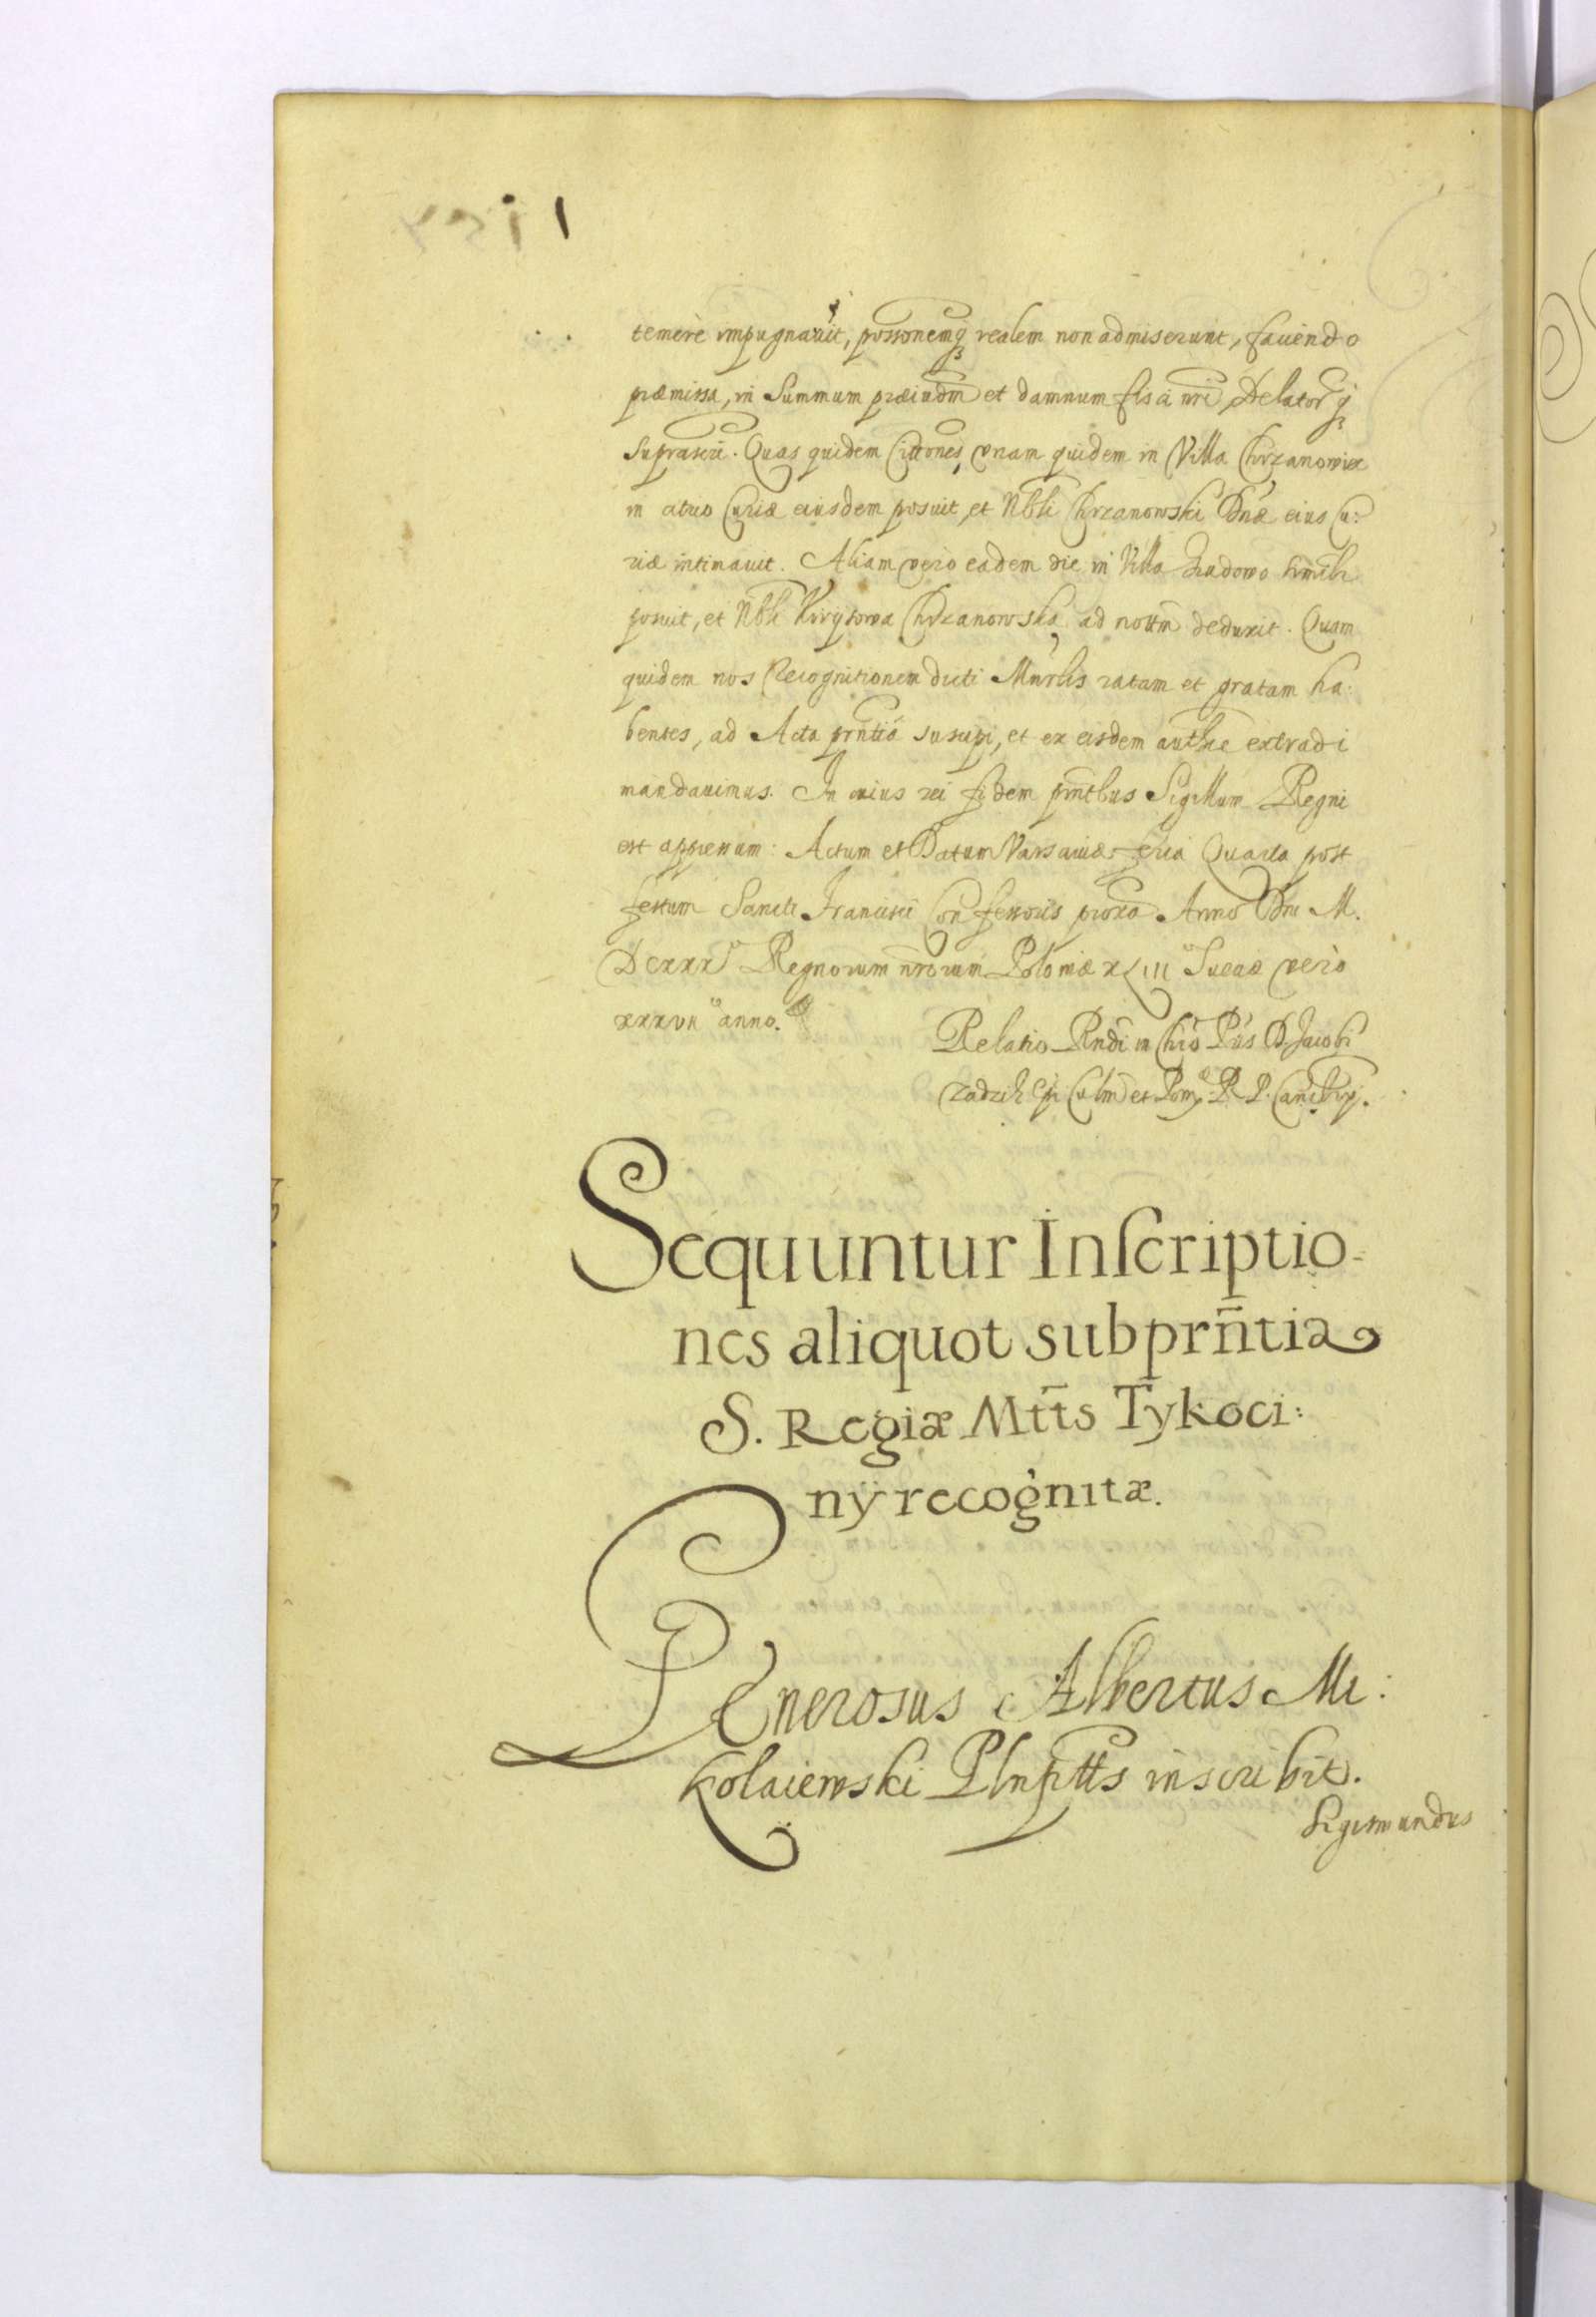 temere impugnauit, possonemq realem non admiserunt, fauendo
præmissa, in Summum præiudm et damnum fisci nri, Delatorq
Suprascri. Quas quidem Cittones, vnam quidem in Villa Chrzanowiet
in atrio Curiæ eiusdem posuit, et Nbli Chrzanowski Dnæ eius Cu:
riæ intimauit. Aliam vero eadem die in Villa
posuit, et Nbli Chrzanowska ad nottm deduxit. Quam
quidem nos Recognitionem dicti Mnrlis ratam et gratam ha:
bentes, ad Acta prntia suscipi, et ex eisdem authce extradi
mandauimus. In cuius rei fidem prntbus Sigillum Regni
est appressum: Actum et Datum Varsauiæ feria Quarta post
festum Sancti Francisci Confessoris proxa Anno Dni M.
DCXXXo Regnorum nrorum Poloniæ XLIIIo Sueciæ vero
XXXVIIo anno.
Relatio Rndi in Chro Pris D Jacobi
Zadzik Epi Culmes et Pom. R. P. Cancrij.
Sequuntur Inscriptio-
nes aliquot sub prñtia
S. Regiæ Mtts Tykoci:
nÿ recognitæ.
Generosus Albertus Mi:
kolaiewski Plnptts inscribit.
Sigismundus